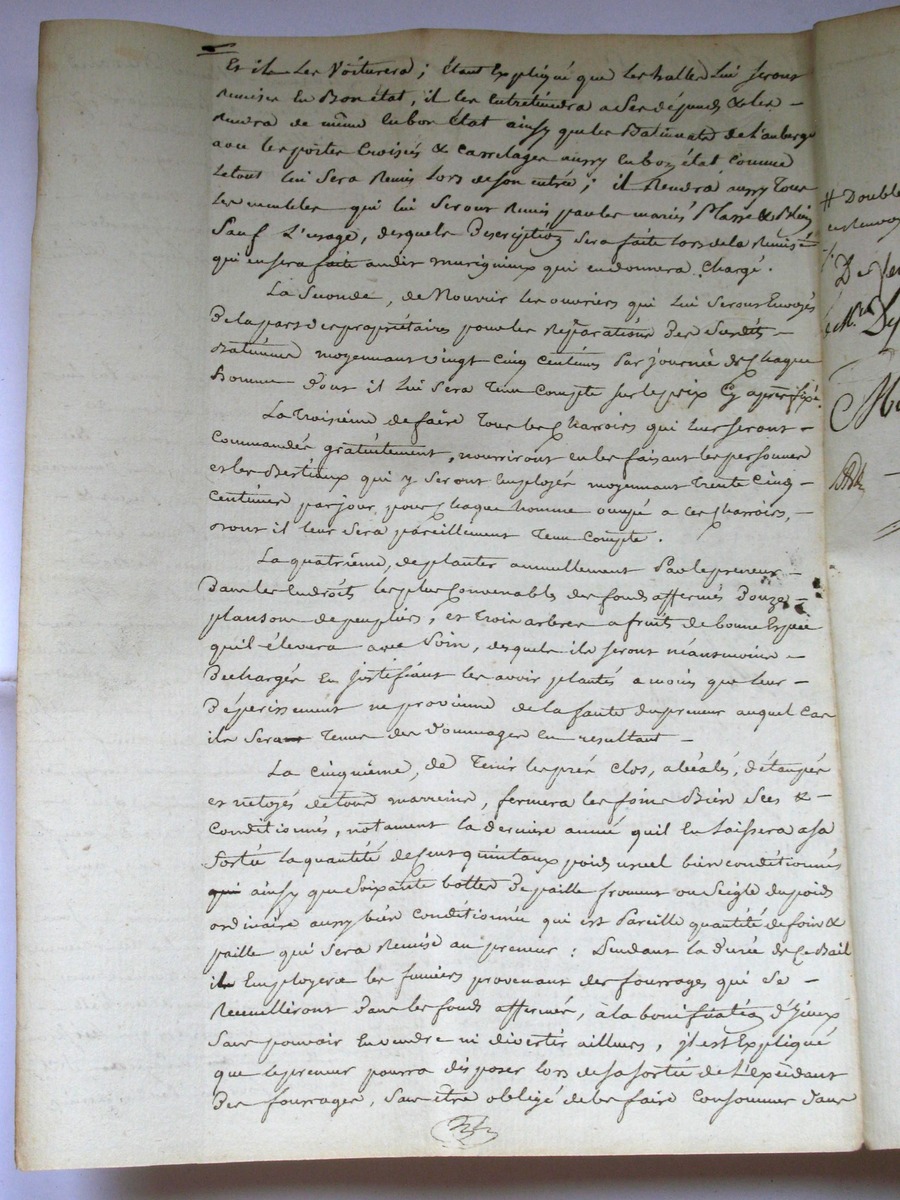 et il les voiturera ; étant Expliqué que les halles lui seront
remises en Bon état, il les entretiendra a ses dépends & les
rendra de même en bon état ainsy que les Batiments de l'auberge
avec les portes Croisées & Carrelages aussy en bon état comme
le tout lui sera Remis lors de son entrée ; il Rendra aussy tous
les meubles qui lui seront Remis par les mariés &
Sauf L'usage, desquels Description sera faite lors de la Remise
qui en sera faite audit qui en donnera Chargé.
La Seconde, de Nourrir les ouvriers qui lui seront Envoyés
De la part des propriétaires pour les Réparations Des Susdits
Batiments moyennant vingt cinq centimes Par journée de Chaque
homme Dont il lui Sera Tenu Compte sur le prix Cy après fixé.
La Troisieme de faire Tous les Charroirs qui leur seront
Commandés gratuitement, nourriront en les faisant les personnes
et les Bestiaux qui y seront Employés moyennant trente Cinq
Centimes par jour, pour Chaque homme occupé a ces Charroirs,
dont il leur Sera pareillement Tenu Compte.
La quatrieme, de planter annuellement Par le preneur
Dans les Endroits les plus Convenables des fonds affermés Douze
plansons de peupliers, et Trois arbres a fruits de bonne Espèce
qu'il élevera avec Soin, desquels ils seront néansmoins
Dechargés En justifiant les avoir plantés a moins que leur
Dépérissement ne provienne de la faute du preneur auquel Cas
ils Sera Tenus des Dommages En resultant
La Cinquieme, de Tenir les prés Clos, , détaupés
et netoyés de tous , fermera les foins Bien Secs &
Conditionnés, notament la derniere année qu'il En laissera a sa
Sortie la quantité de Cent quintaux poids usuel bien conditionnés
qui ainsy que Soixante bottes De paille froment ou Seigle du poids
ordinaire aussy bien Conditionnée qui est Pareille quantité de foin &
paille qui Sera Remise au preneur : Pendant la Durée de Ce Bail
il Employera les fumiers provenant des fourrages qui Se
Recueilliront Dans les fonds affermés, à la bonification d'Iceux
Sans pouvoir En vendre ni divertir ailleurs, jl est Expliqué
que le preneur pourra disposer lors de sa sortie de L'excédant
Des fourrages, Sans être obligé de les faire Consommer Dans
# Double